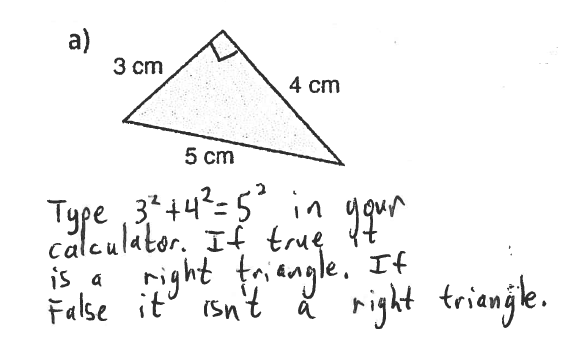 a)
3 cm
4 cm
5 cm
Type 3²+4²=5² in your
calculator. If true it
is a right triangle. If
False it isn't a right triangle.